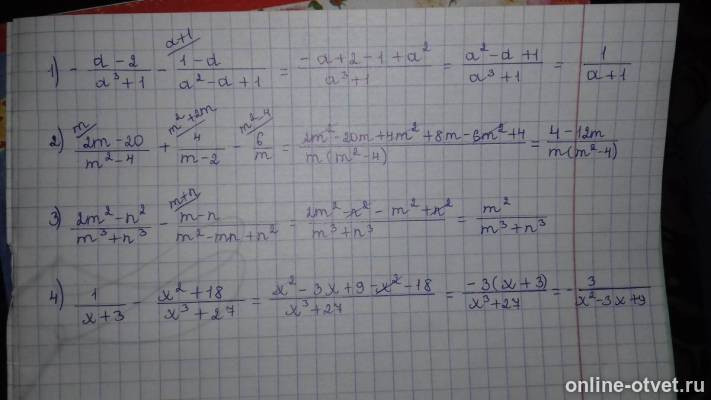 1) - (a - 2)/(a³ + 1) - (1 - a)/(a² - a + 1) ^(a+1) = (-a + 2 - 1 + a²)/(a³ + 1) = (a² - a + 1)/(a³ + 1) = 1/(a + 1)
2) (2m - 20)/(m² - 4) ^(m) + 4/(m - 2) ^(m² + 2m) - 6/m ^(m² - 4) = (2m² - 20m + 4m² + 8m - 6m² + 4)/(m(m² - 4)) = (4 - 12m)/(m(m² - 4))
3) (2m² - n²)/(m³ + n³) - (m - n)/(m² - mn + n²) ^(m+n) = (2m² - n² - m² + n²)/(m³ + n³) = m²/(m³ + n³)
4) 1/(x + 3) - (x² + 18)/(x³ + 27) = (x² - 3x + 9 - x² - 18)/(x³ + 27) = (-3(x + 3))/(x³ + 27) = - 3/(x² - 3x + 9)
online-otvet.ru